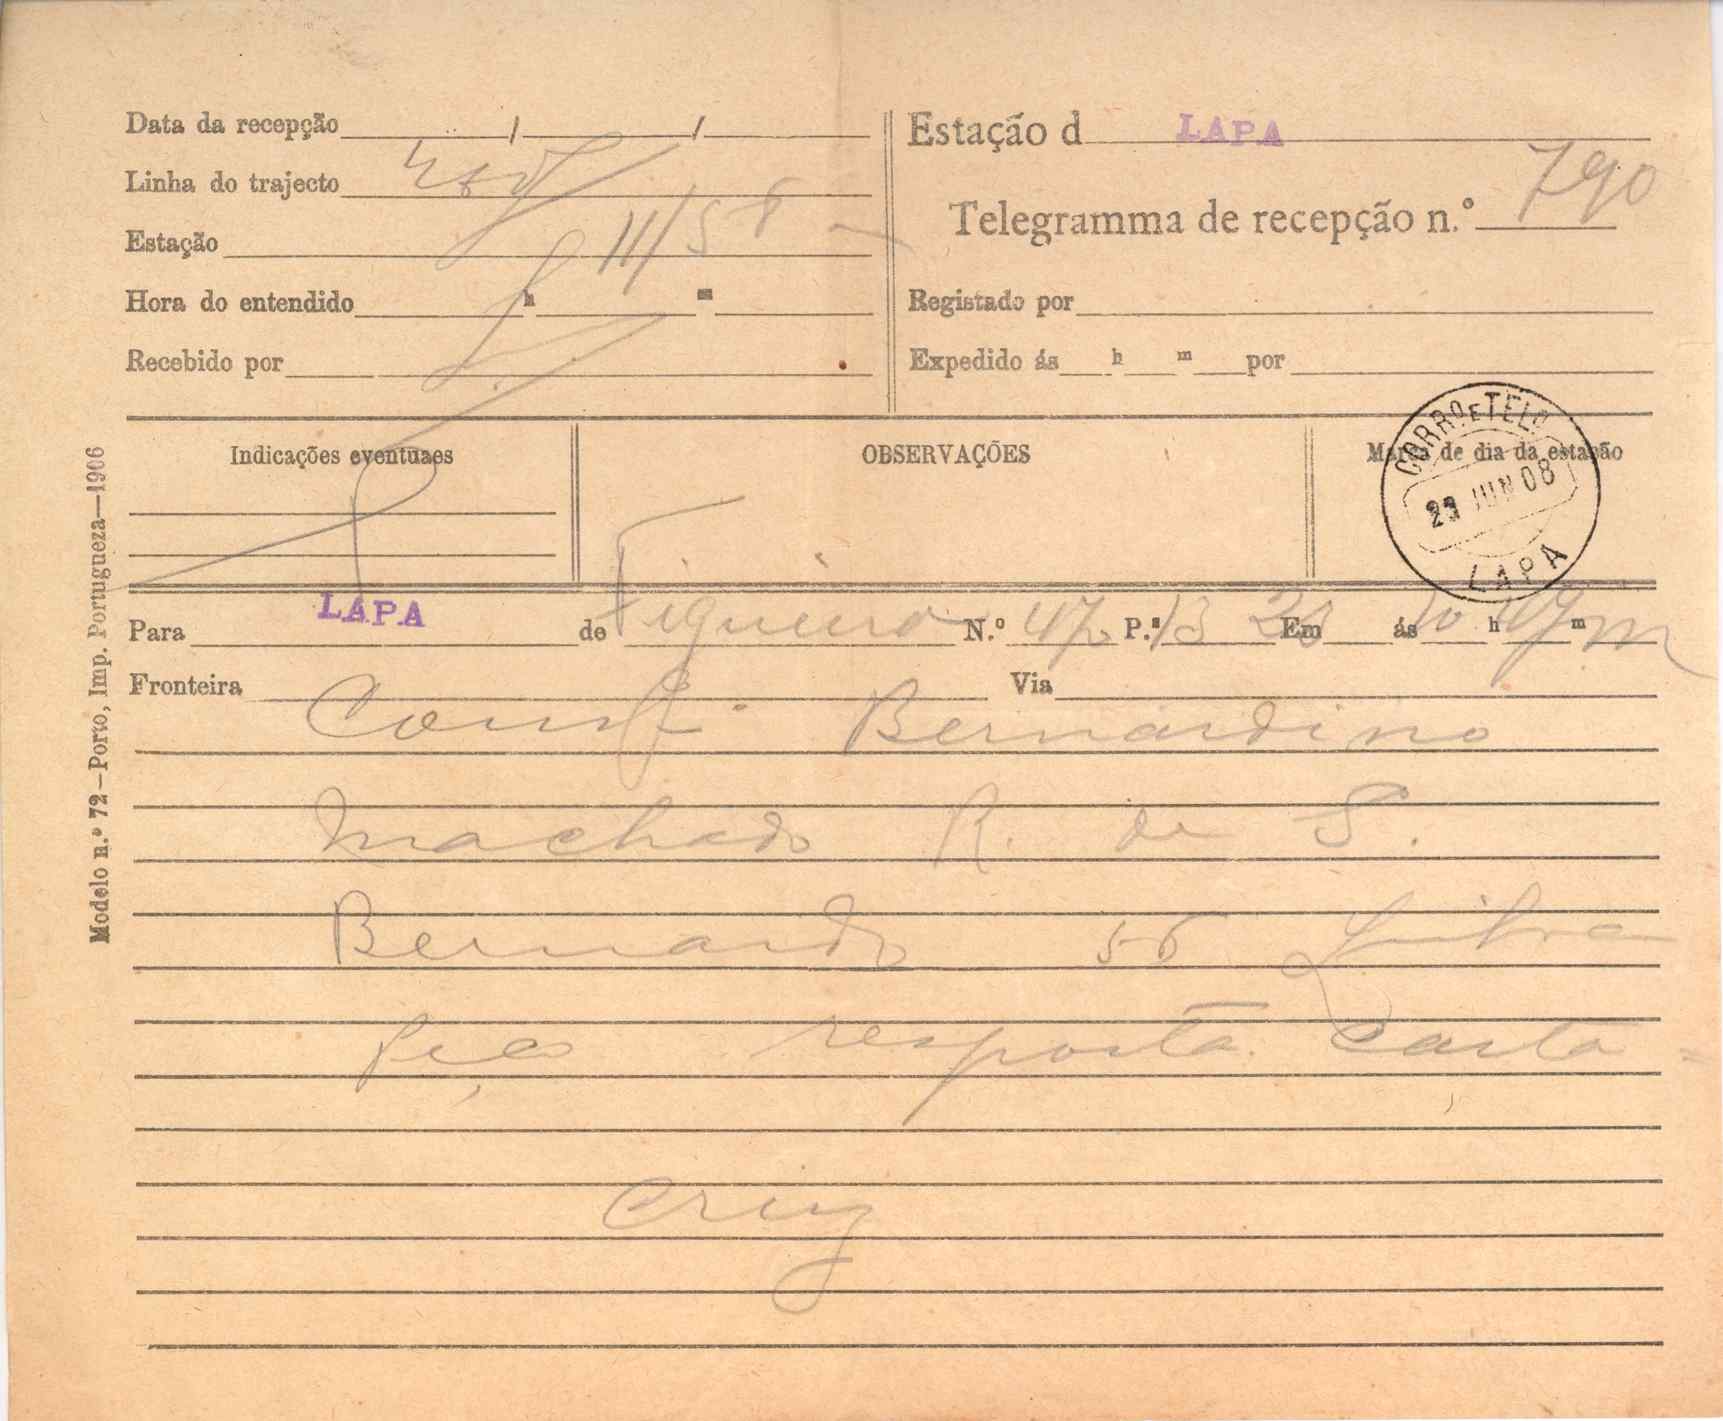 Data da recepção / /
Linha do trajecto
Estação 11/58
Hora do entendido h m
Recebido por
Estação d LAPA
Telegramma de recepção n.º 790
Registado por
Expedido ás h m por
Indicações eventuaes
OBSERVAÇÕES
Marca de dia da estação
CORRO E TELO
23 JUN 08
LAPA
Para LAPA de Figueiro N.º 472 P.ª 13 23 Em ás 10 h 49 m m
Fronteira Via
Consº Bernardino
Machado R. de S.
Bernardo 56 Lisboa
Peço resposta carta =
Cruz
Modelo n.º 72—Porto, Imp. Portugueza—1906